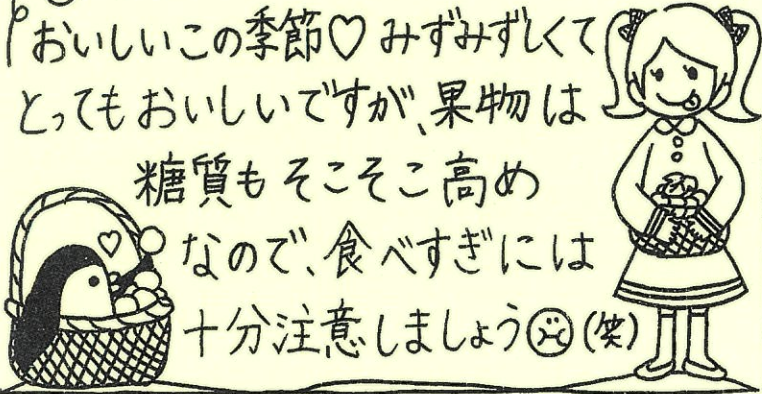 おいしいこの季節♡みずみずしくて
とってもおいしいですが、果物は
糖質もそこそこ高め
なので、食べすぎには
十分注意しましょう(笑)